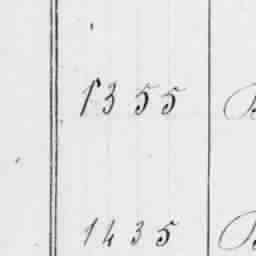 1355
1435